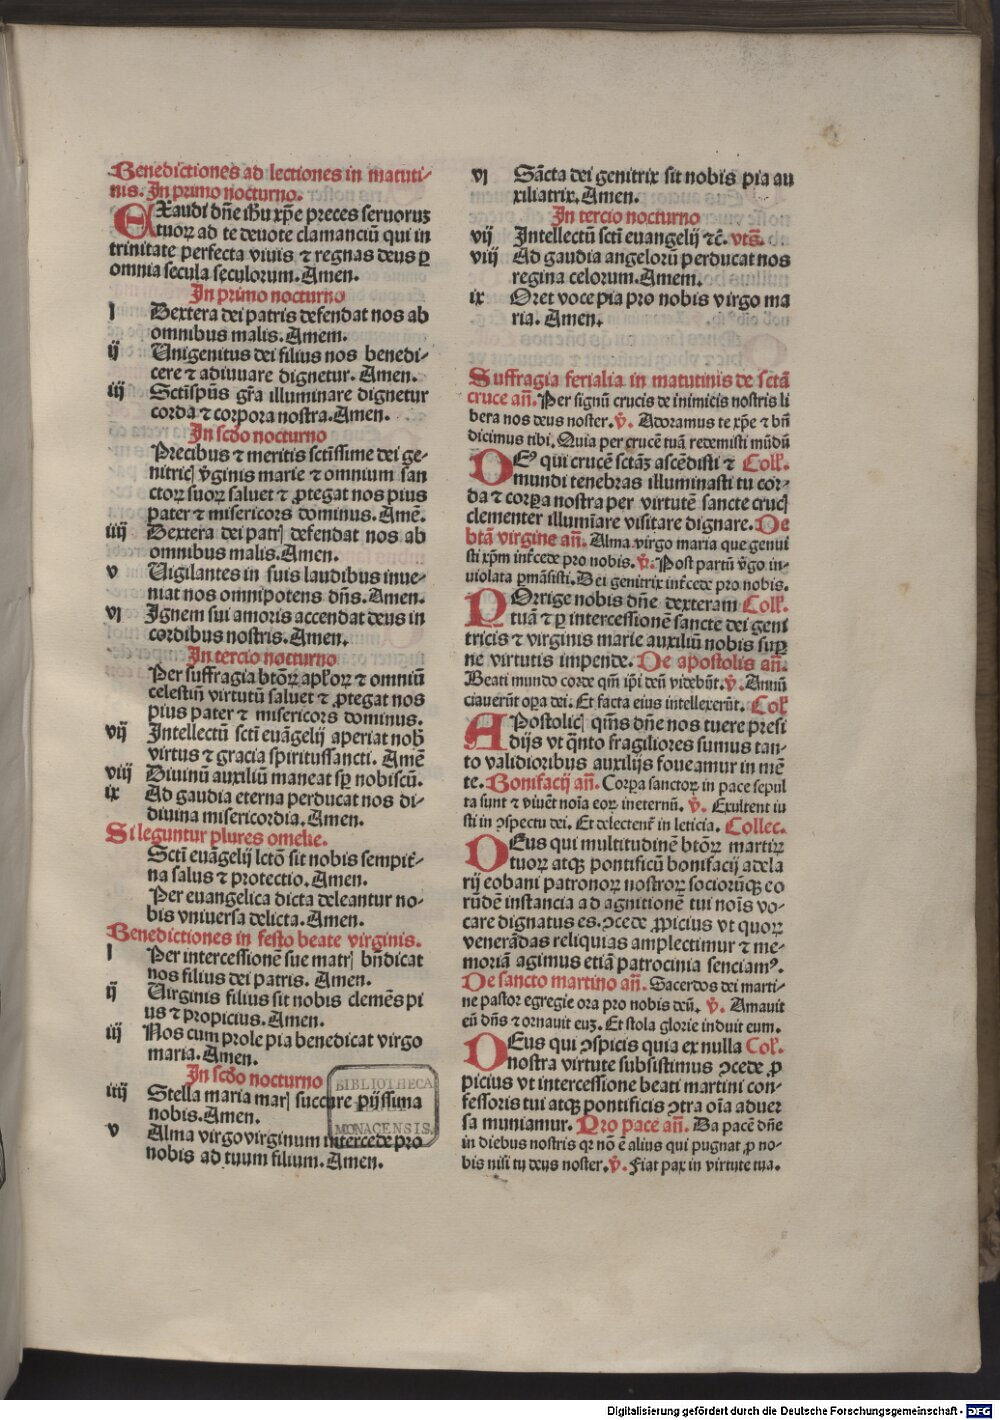 Benedictiones ad lectiones in matuti-
nis. In primo nocturno.
EXaudi dñe ihũ xp̃e preces seruoruꝫ
tuoꝝ ad te deuote clamanciũ qui in
trinitate perfecta viuis ⁊ regnas deus ꝑ
omnia secula seculorum. Amen.
In primo nocturno
I Dextera dei patris defendat nos ab
omnibus malis. Amem.
ij Unigenitus dei filius nos benedi-
cere ⁊ adiuuare dignetur. Amen.
iij Sctĩspũs gr̃a illuminare dignetur
corda ⁊ corpora nostra. Amen.
In scðo nocturno
Precibus ⁊ meritis sctĩssime dei ge-
nitricꝭ v̾ginis marie ⁊ omnium san
ctoꝝ suoꝝ saluet ⁊ ꝓtegat nos pius
pater ⁊ misericors dominus. Amẽ.
iiij Dextera dei patrꝭ defendat nos ab
omnibus malis. Amen.
v Uigilantes in suis laudibus inue-
niat nos omnipotens dñs. Amen.
vi Ignem sui amoris accendat deus in
cordibus nostris. Amen.
In tercio nocturno
Per suffragia btõꝝ apľoꝝ ⁊ omniũ
celestiũ virtutũ saluet ⁊ ꝓtegat nos
pius pater ⁊ misericors dominus.
vij Intellectũ sctĩ euãgelij aperiat nob̃
virtus ⁊ gracia spiritussancti. Amẽ
viij Diuinũ auxiliũ maneat sꝑ nobiscũ.
ix Ad gaudia eterna perducat nos di-
diuina misericordia. Amen.
Si leguntur plures omelie.
Sctĩ euãgelij lctõ sit nobis sempit̾-
na salus ⁊ protectio. Amen.
Per euangelica dicta deleantur no-
bis vniuersa delicta. Amen.
Benedictiones in festo beate virginis.
I Per intercessionẽ sue matrꝭ bñdicat
nos filius dei patris. Amen.
ij Uirginis filius sit nobis clemẽs pi
us ⁊ propicius. Amen.
iij Nos cum prole pia benedicat virgo
maria. Amen.
In scðo nocturno
iiij Stella maria marꝭ succure pijssima
nobis. Amen.
v Alma virgo virginum intercede pro
nobis ad tuum filium. Amen.
BIBLIOTHECA
MONACENSIS.
vi Sãcta dei genitrix sit nobis pia au
xiliatrix. Amen.
In tercio nocturno
vij Intellectũ sctĩ euangelij ⁊c̃. vts̃.
viij Ad gaudia angelorũ perducat nos
regina celorum. Amem.
ix Oret voce pia pro nobis virgo ma
ria. Amen.
Suffragia ferialia in matutinis de sctã
cruce añ. Per signũ crucis de inimicis nostris li
bera nos deus noster. v̾. Adoramus te xp̃e ⁊ bñ
dicimus tibi. Quia per crucẽ tuã redemisti mũdũ
DEꝰ qui crucẽ sctãꝫ ascẽdisti ⁊ Coll̾.
mundi tenebras illuminasti tu cor-
da ⁊ corꝑa nostra per virtutẽ sancte crucꝭ
clementer illumĩare visitare dignare. De
btã virgine añ. Alma virgo maria que genui
sti xpm̃ int̾cede pro nobis. v̾. Post partũ v̾go in-
uiolata ꝑmãsisti. Dei genitrix int̾cede pro nobis.
POrrige nobis dñe dexteram Coll̾.
tuã ⁊ ꝑ intercessionẽ sancte dei geni
tricis ⁊ virginis marie auxiliũ nobis suꝑ
ne virtutis impende. De apostolis añ.
Beati mundo corde qm̃ ip̃i deũ videbũt. v̾. Annũ
ciauerũt oꝑa dei. Et facta eius intellexerũt. Col̾
APostolicꝭ qm̃s dñe nos tuere presi
dijs vt q̃nto fragiliores sumus tan-
to validioribus auxilijs foueamur in mẽ
te. Bonifacij añ. Corꝑa sanctoꝝ in pace sepul
ta sunt ⁊ viuẽt noĩa eoꝝ in eternũ. v̾. Exultent iu
sti in ꝯspectu dei. Et delectent̾ in leticia. Collec.
DEus qui multitudinẽ btõꝝ martiꝝ
tuoꝝ atqꝫ pontificũ bonifacij adela
rij eobani patronoꝝ nostroꝝ sociorũqꝫ eo
rũdẽ instancia ad agnitionẽ tui noĩs vo-
care dignatus es. ꝯcede ꝓpicius vt quoꝝ
venerãdas reliquias amplectimur ⁊ me-
moriã agimus etiã patrocinia senciamꝰ.
De sancto martino añ. Sacerdos dei marti-
ne pastor egregie ora pro nobis deũ. v̾. Amauit
eũ dñs ⁊ ornauit euꝫ. Et stola glorie induit eum.
DEus qui ꝯspicis quia ex nulla Col̾.
nostra virtute subsistimus ꝯcede ꝓ
picius vt intercessione beati martini con-
fessoris tui atqꝫ pontificis ꝯtra oĩa aduer
sa muniamur. Pro pace añ. Da pacẽ dñe
in diebus nostris qꝛ nõ ẽ alius qui pugnat ꝓ no-
bis nisi tu deus noster. v̾. Fiat pax in virtute tua.
Digitalisierung gefördert durch die Deutsche Forschungsgemeinschaft - DFG